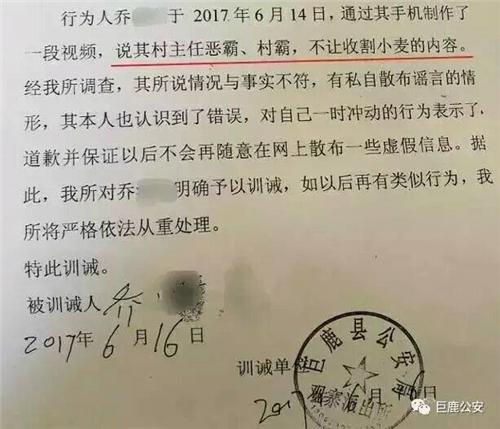 行为人乔 于2017年6月14日，通过其手机制作了
一段视频，说其村主任恶霸、村霸，不让收割小麦的内容。
经我所调查，其所说情况与事实不符，有私自散布谣言的情
形，其本人也认识到了错误，对自己一时冲动的行为表示了
道歉并保证以后不会再随意在网上散布一些虚假信息。据
此，我所对乔 明确予以训诫，如以后再有类似行为，我
所将严格依法从重处理。
特此训诫。
被训诫人 乔
2017年6月16日
训诫单
巨鹿县公安局
寨派出所
2017 月 日
巨鹿公安